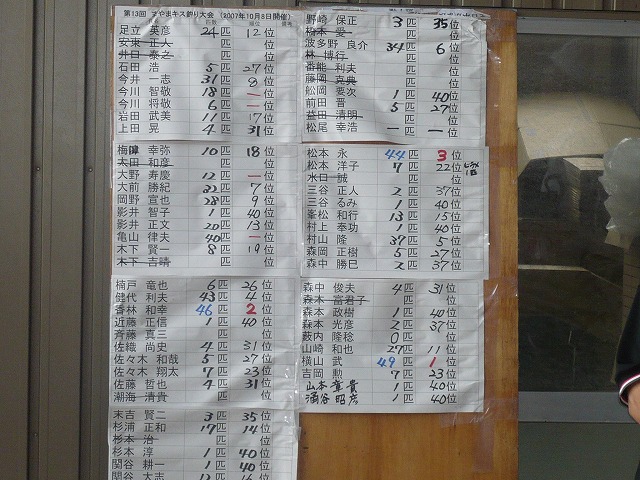 第13回 さやまキス釣り大会 (2007年10月8日開催)
足立 英彦 24 匹 12 位
安東 正人 匹 位
井口 泰之 匹 位
石田 浩 5 匹 27 位
今井 一志 31 匹 8 位
今川 智敬 18 匹 一 位
今川 将敬 6 匹 一 位
岩田 武美 11 匹 17 位
上田 晃 4 匹 31 位
梅障 幸弥 10 匹 18 位
太田 和彦 匹 位
大野 寿慶 12 匹 一 位
大前 勝紀 32 匹 7 位
岡野 宣也 28 匹 9 位
影井 智子 1 匹 40 位
影井 正文 20 匹 13 位
亀山 律夫 40 匹 一 位
木下 賢一 8 匹 19 位
木下 吉晴 匹 位
楠戸 竜也 6 匹 26 位
健代 利夫 43 匹 4 位
香林 和幸 46 匹 2 位
近藤 正信 1 匹 40 位
斉藤 真三 匹 位
佐織 尚史 4 匹 31 位
佐々木 和哉 5 匹 27 位
佐々木 翔太 7 匹 23 位
佐藤 哲也 4 匹 31 位
潮海 清貴 匹 位
末吉 賢二 3 匹 35 位
杉浦 正和 17 匹 14 位
杉本 治 匹 位
杉本 淳 1 匹 40 位
関谷 耕一 1 匹 40 位
関谷 大志 12 匹 16 位
野崎 保正 3 匹 35 位
橋本 愛 匹 位
波多野 良介 34 匹 6 位
林 博行 匹 位
番能 利夫 匹 位
藤岡 克典 匹 位
舩岡 要次 1 匹 40 位
前田 晋 5 匹 27 位
益田 清明 匹 位
松尾 幸浩 一 匹 一 位
松本 永 44 匹 3 位
松本 洋子 7 匹 22 位
水口 誠 匹 位
三谷 正人 2 匹 37 位
三谷 るみ 1 匹 40 位
峯松 和行 13 匹 15 位
村上 奉功 1 匹 40 位
村山 隆 37 匹 5 位
森岡 正樹 5 匹 27 位
森中 勝巳 2 匹 37 位
森中 俊夫 4 匹 31 位
森本 富君子 匹 位
森本 政樹 1 匹 40 位
森本 光彦 2 匹 37 位
薮内 隆稔 0 匹 位
山崎 和也 27 匹 11 位
横山 武 49 匹 1 位
吉岡 勲 7 匹 23 位
山本 章貴 1 匹 40 位
涌谷 昭彦 1 匹 40 位